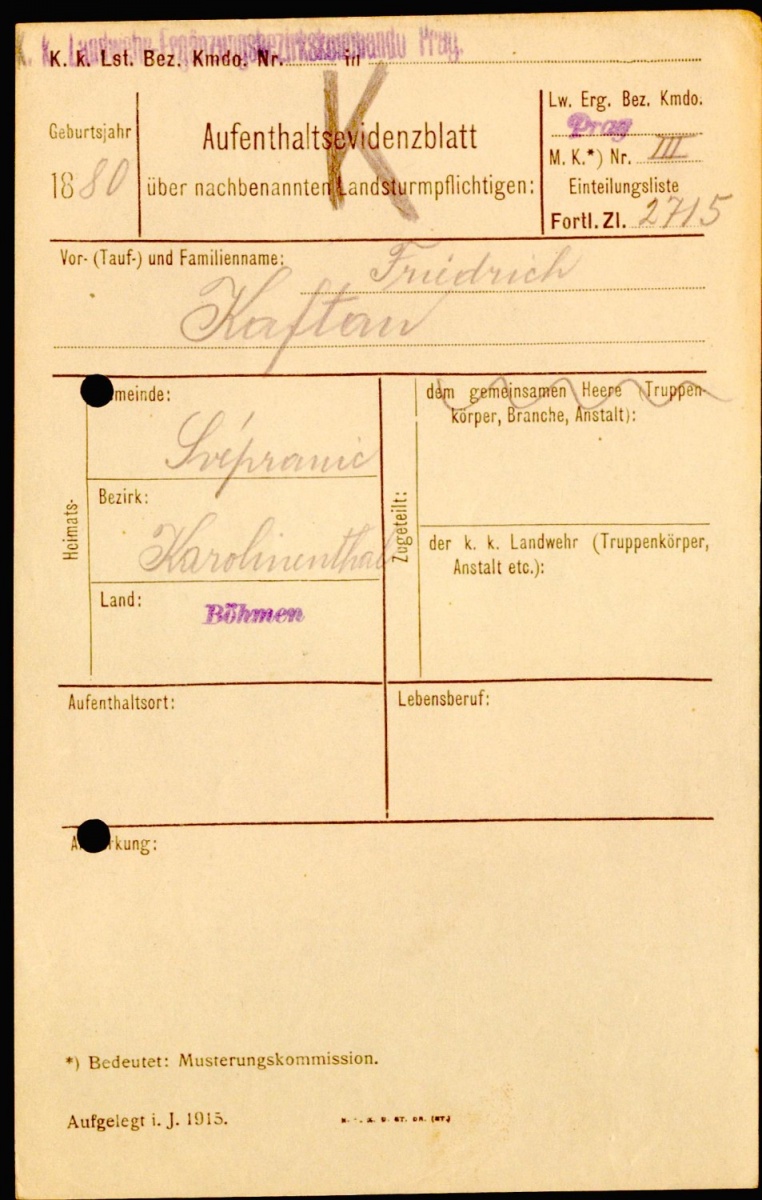 K. k. Landwehr-Ergänzungsbezirkskommando Prag.
K. k. Lst. Bez. Kmdo. Nr. in
K
Geburtsjahr
1880
Aufenthaltsevidenzblatt
über nachbenannten Landsturmpflichtigen:
Lw. Erg. Bez. Kmdo.
Prag
M. K.*) Nr. III
Einteilungsliste
Fortl. Zl. 2715
Vor- (Tauf-) und Familienname: Friedrich
Kaftan
Heimats-
meinde:
Bezirk:
Karolinenthal
Land:
Böhmen
Zugeteilt:
dem gemeinsamen Heere (Truppen-
körper, Branche, Anstalt):
der k. k. Landwehr (Truppenkörper,
Anstalt etc.):
Aufenthaltsort:
Lebensberuf:
A rkung:
*) Bedeutet: Musterungskommission.
Aufgelegt i. J. 1915.